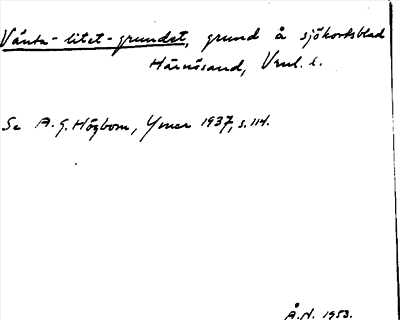 Vänta-litet-grundet, grund å sjökortsblad
Härnösand, Vrnl. l.
Se A. G. Högbom, Ymer 1937, s. 114.
Å. N. 1953.